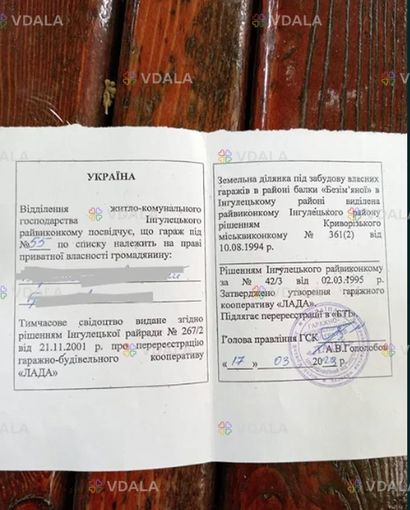 VDALA
VDALA
VDALA
УКРАЇНА
Відділення житло-комунального
господарства Інгулецького
райвиконкому посвідчує, що гараж під
№ 55 по списку належить на праві
приватної власності громадянину:
Тимчасове свідоцтво видане згідно
рішенням Інгулецької райради № 267/2
від 21.11.2001 р. про перереєстрацію
гаражно-будівельного кооперативу
«ЛАДА»
Земельна ділянка під забудову власних
гаражів в районі балки «Безім'яної» в
Інгулецькому районі виділена
райвиконкому Інгулецького району
рішенням Криворізького
міськвиконкому № 361(2) від
10.08.1994 р.
Рішенням Інгулецького райвиконкому
за № 42/3 від 02.03.1995 р.
Затверджено утворення гаражного
кооперативу «ЛАДА».
Підлягає перереєстрації в «БТІ».
Голова правління ГСК
А.В.Гололобов
« 17 » 03 2023 р.
VDALA
VDALA
VDALA
VDALA
VDALA
VDALA
VDALA